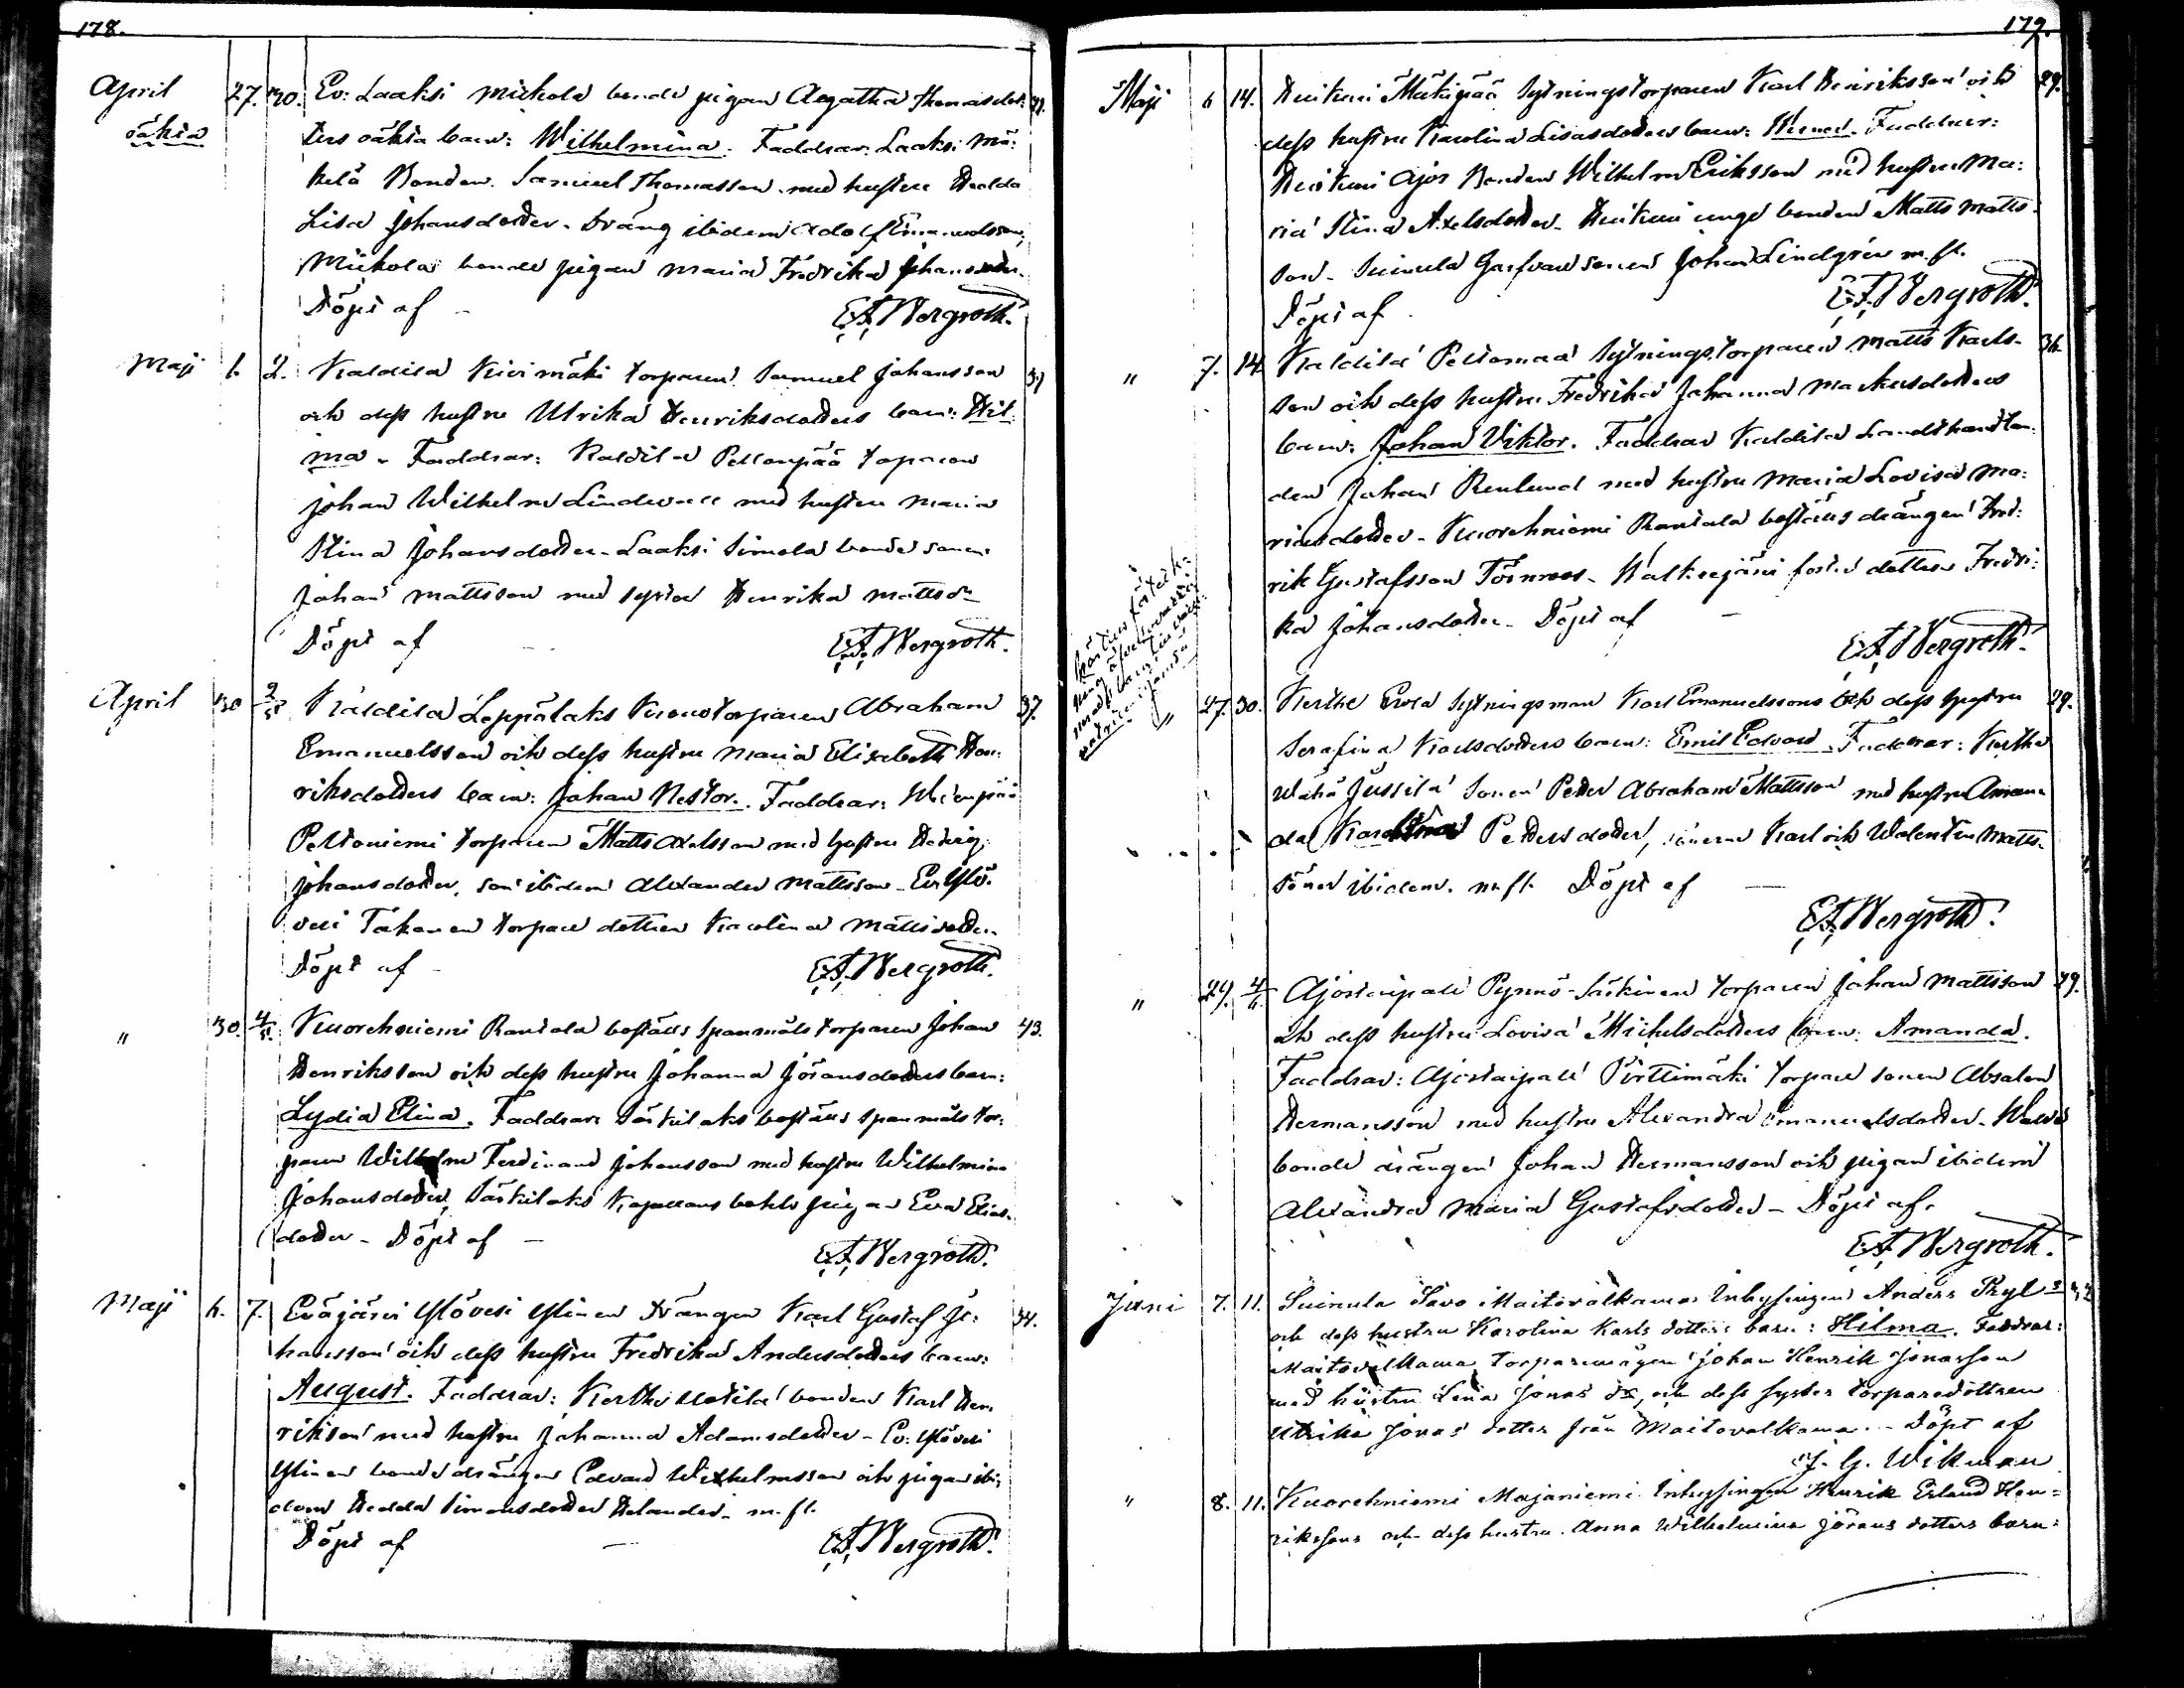 178.
April 27. 30. Ev: Laaksi Mickola bonde pigan Agatha Thomasdot:
oäkta ters oäkta barn: Wilhelmina. Faddrar: Laaksi Mä:
kelä Bonden Samuel Thomasson med hustru Hedda
Lisa Johansdotter. Dräng ibidem Adolf Emanuelsson,
Mickola bonde pigan Maria Fredrika Johansdotter.
Döpt af E.F. Bergroth.
Maji 1. 2. Kaldila Kivimäki torparen Samuel Johansson 37
och dess hustru Ulrika Henriksdotters barn: Hil:
ma. Faddrar: Kaldila Peltonpää torparen
Johan Wilhelm Lindevall med hustru Maria
Stina Johansdotter. Laaksi Simola bonde sonen
Johan Mattsson med syster Henrika Mattsdr
Döpt af E.F. Bergroth.
April 30 2/5 Kaldila Leppälaks Kronotorparen Abraham 37.
Emanuelsson och dess hustru Maria Elisabeth Hen:
riksdotters barn: Johan Nestor. Faddrar:
Peltoniemi torparen Matts Axelsson med hustru Hedvig
Johansdotter, son ibidem Alexander Mattsson. Ev. Ylö:
vesi Takanen torpare dottren Karolina Mattsdotter.
Döpt af E.F. Bergroth.
" 30. 4/5. Kuorehniemi Rantala boställs Spanmåls torparen Johan 43.
Henriksson och dess hustru Johanna Göransdotters barn:
Lydia Elina. Faddrar: Särkilaks boställs spanmåls tor:
paren Wilhelm Ferdinand Johansson med hustru Wilhelmina
Johansdotter, Särkilaks Kapellans bohls pigan Eva Elias
dotter. Döpt af
E.F. Bergroth.
Maji 6. 7. Eväjärvi Ylövesi Ylinen Drängen Karl Gustaf Jo: 34.
hansson och dess hustru Fredrika Andersdotters barn:
August. Faddrar: Kertke Uotila bonden Karl Hen:
riksson med hustru Johanna Adamsdotter. Ev: Ylövesi
Ylinen bonde drängen Edvard Wilhelmsson och pigan ibi:
dem Hedda Simonsdotter Helander. m. fl.
Döpt af E.F. Bergroth.
179.
Maji 6 14. Huikuri Mäkipää Sytningstorparen Karl Henriksson och 29.
dess hustru Karolina Lisasdotters barn: Werner. Faddrar:
Huikuri Ajos Bonden Wilhelm Eriksson med hustru Ma:
ria Stina Axelsdotter. Huikuri unge bonden Matts Matts:
son. Suinula Garfvare sonen Johan Lindgren m. fl.
Döpt af E.F. Bergroth.
" 7. 14. Kaldila Peltomaa Sytningstorparen Matts Karls- 36.
son och dess hustru Fredrika Johanna Markusdotters
barn: Johan Viktor. Faddrar Kaldila Landthandlan:
den Johan Renlund med hustru Maria Lovisa Ma:
riasdotter. Kuorehniemi Rantala boställs drängen Fred:
rik Gustafsson Törnroos. Halkeejärvi foster dottren Fredri:
ka Johansdotter. Döpt af
E.F. Bergroth.
" 27. 30. Kertke Erola Sytningsman Karl Emanuelssons och dess hustru 29.
Serafina Karlsdotters barn: Emil Edvard. Faddrar: Kertke
Wähä Jussila Sonen Peter Abraham Mattsson med hustru Aman
da Karolina Pettersdotter, sönerne Karl och Walentin Matts
söner ibidem. m. fl. Döpt af
E.F. Bergroth.
" 29. 4/6 Ajostaipale Pynnö-Särkinen torparen Johan Mattsson 29.
och dess hustru Lovisa Michelsdotters barn: Amanda.
Faddrar: Ajostaipale Pirttimäki torpare sonen Absalon
Hermansson med hustru Alexandra Emanuelsdotter.
bonde drängen Johan Hermansson och pigan ibidem
Alexandra Maria Gustafsdotter. Döpt af.
E.F. Bergroth.
Juni 7. 11. Suinula Savo Maitovalkama Inhysingen Anders
och dess hustru Karolina Karls dotters barn: Hilma. Faddrar:
Maitovalkama Torparemågen Johan Henrik Jonasson
med hustru Lena Jonas dr, och dess syster torparedottren
Ulrika Jonas dotter från Maitovalkama. - Döpt af
J. G. Wikman
" 8. 11. Kuorehniemi Majaniemi Inhysingen Henrik Erland Hen=
rikssons och dess hustru Anna Wilhelmina Görans dotters barn: